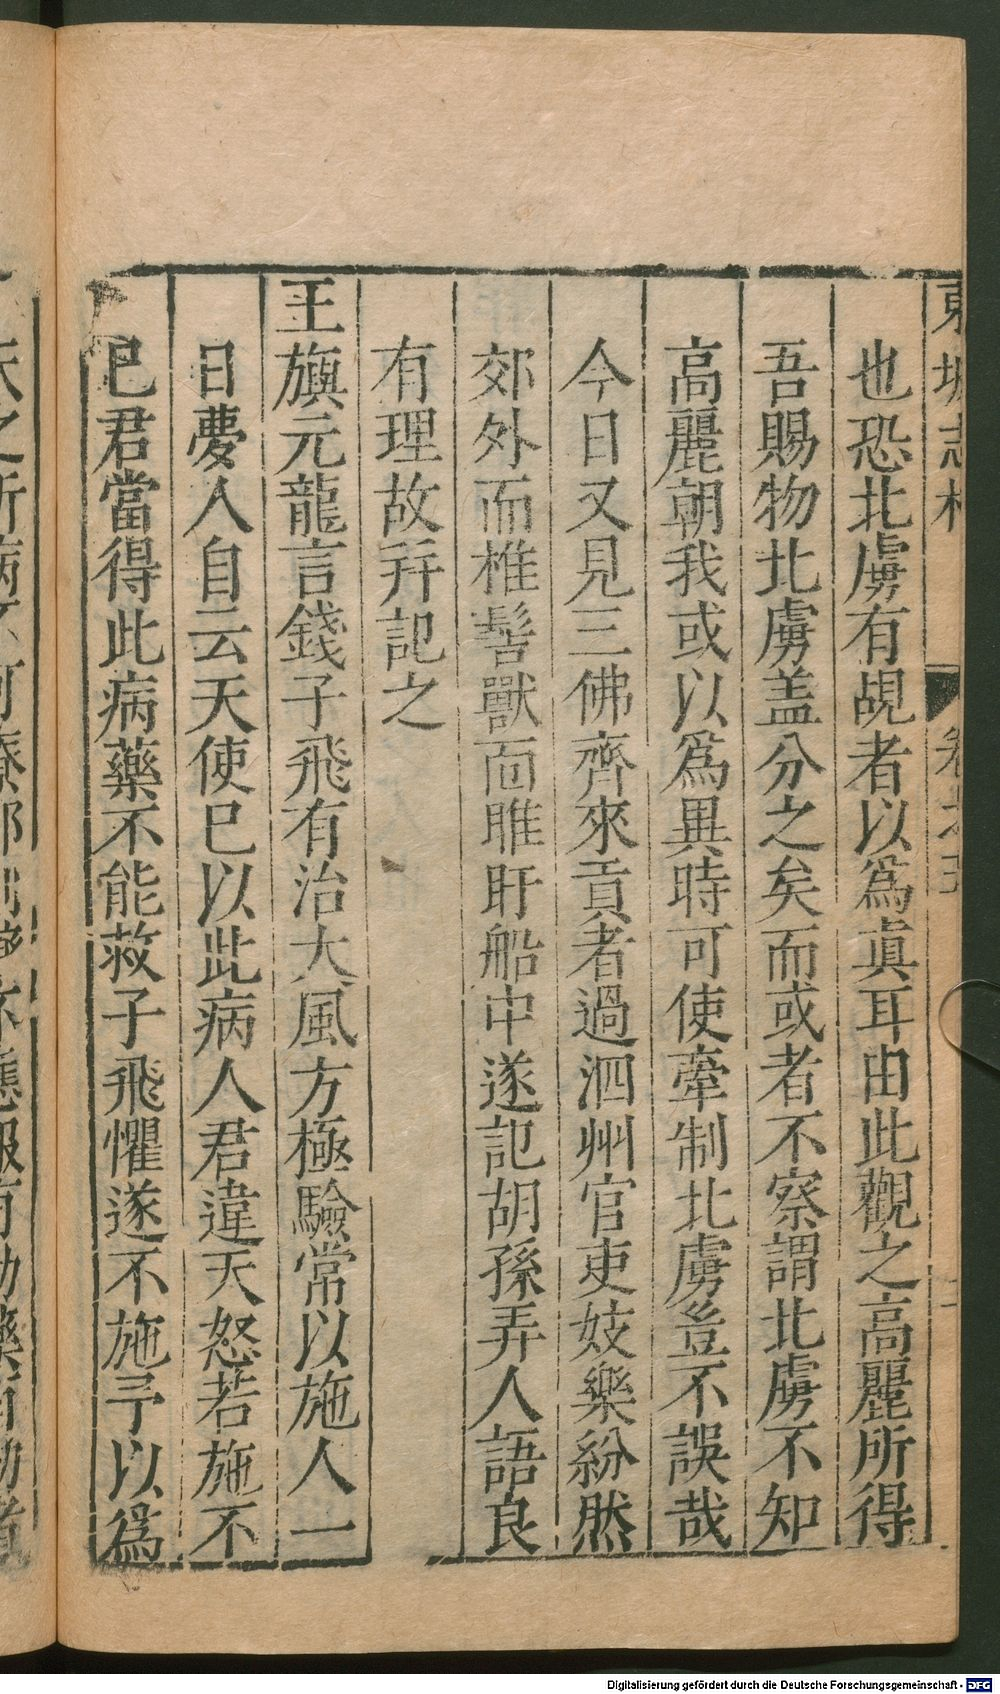 東坡志林 卷之五
也恐北虜有覘者以爲眞耳由此觀之高麗所得
吾賜物北虜盖分之矣而或者不察謂北虜不知
高麗朝我或以爲異時可使牽制北虜豈不誤哉
今日又見三佛齊來貢者過泗州官吏妓樂紛然
郊外而椎髻獸面睢盱船中遂記胡孫弄人語良
有理故幷記之
王旗元龍言錢子飛有治大風方極驗常以施人一
日夢人自云天使已以此病人君違天怒若施不
已君當得此病藥不能救子飛懼遂不施予以爲
Digitalisierung gefördert durch die Deutsche Forschungsgemeinschaft - DFG